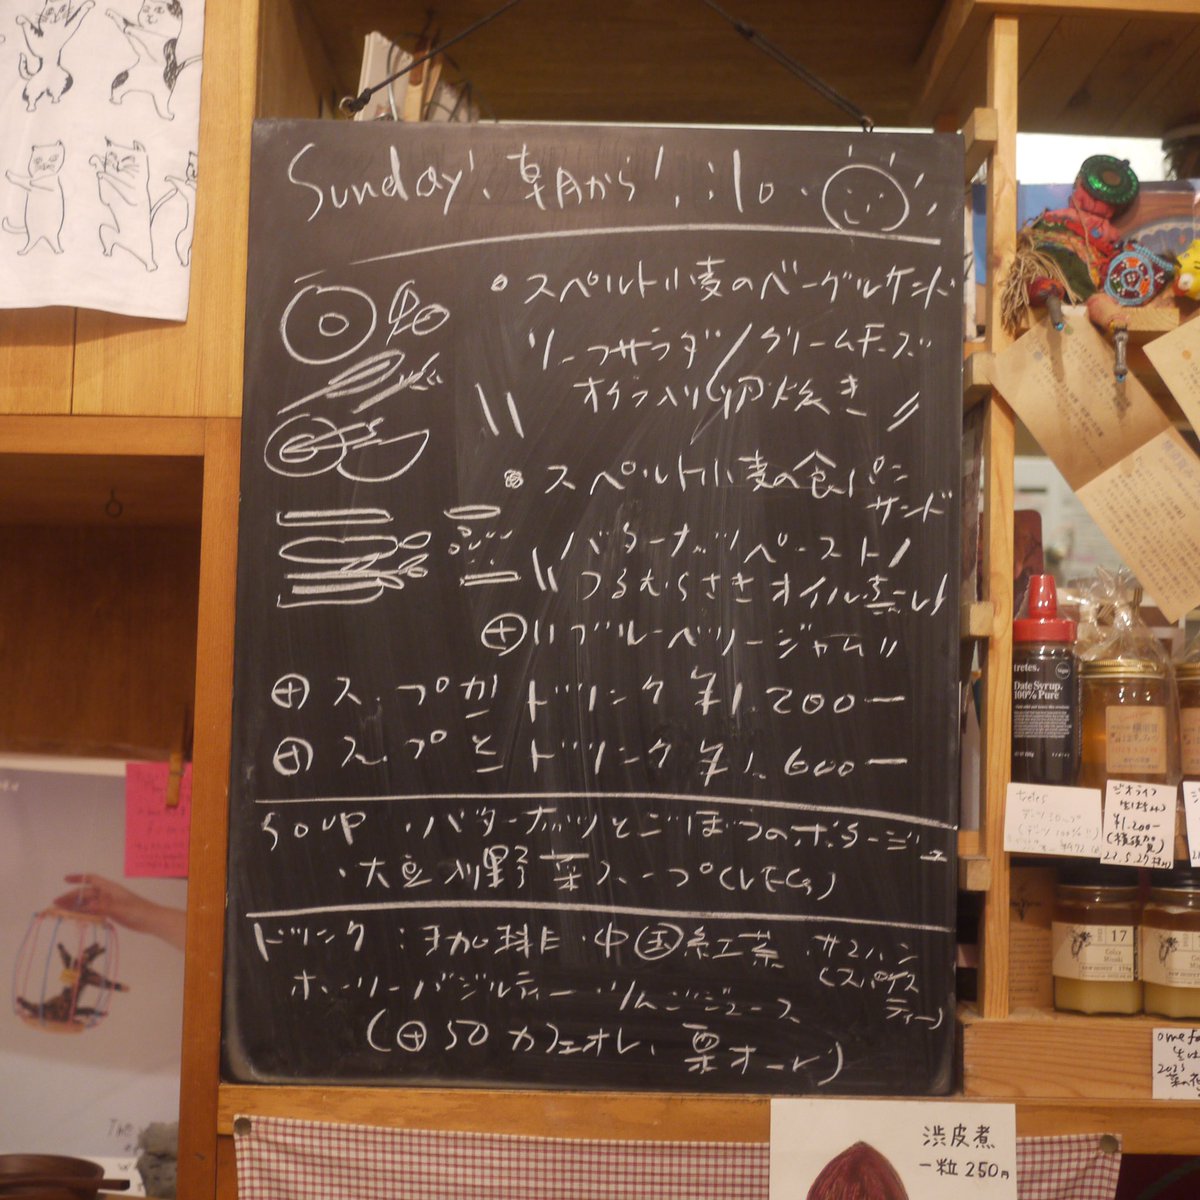 Sunday! 朝から! ilo.
・スペルト小麦のベーグルサンド
リーフサラダ/クリームチーズ
オクラ入り卵焼き
・スペルト小麦の食パン
サンド
バターナッツペースト/
つるむらさきオイル蒸し/
⊕ブルーベリージャム
⊕スープか ドリンク ¥1.200ー
⊕スープと ドリンク ¥1.600ー
SOUP ・バターナッツとごぼうのポタージュ
・大豆入り野菜スープ(VEG)
ドリンク:珈琲・中国紅茶・サマハン
(スパイスティー)
ホーリーバジルティー・りんごジュース
(⊕50 カフェオレ、栗オーレ)
tretes.
Date Syrup.
100% Pure
tretes
ジオライフ
生はちみつ
¥1.200-
(横須賀)
17
渋皮煮
一粒 250円